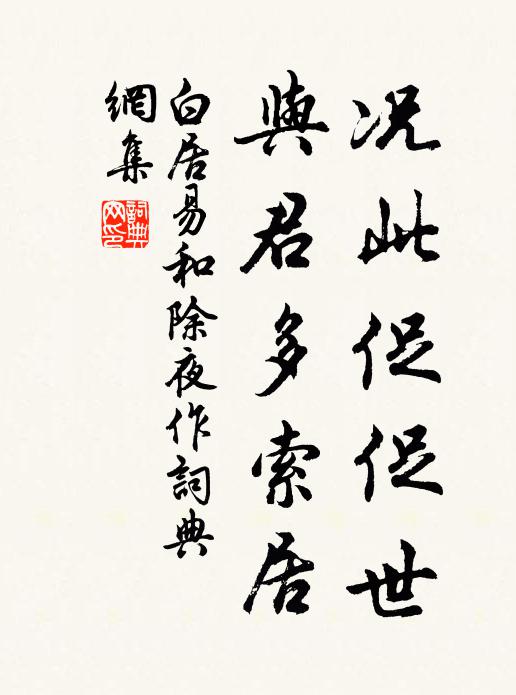 况此促促世
與君多索居
白居易和除夜作詞典
網集
詞典
网印